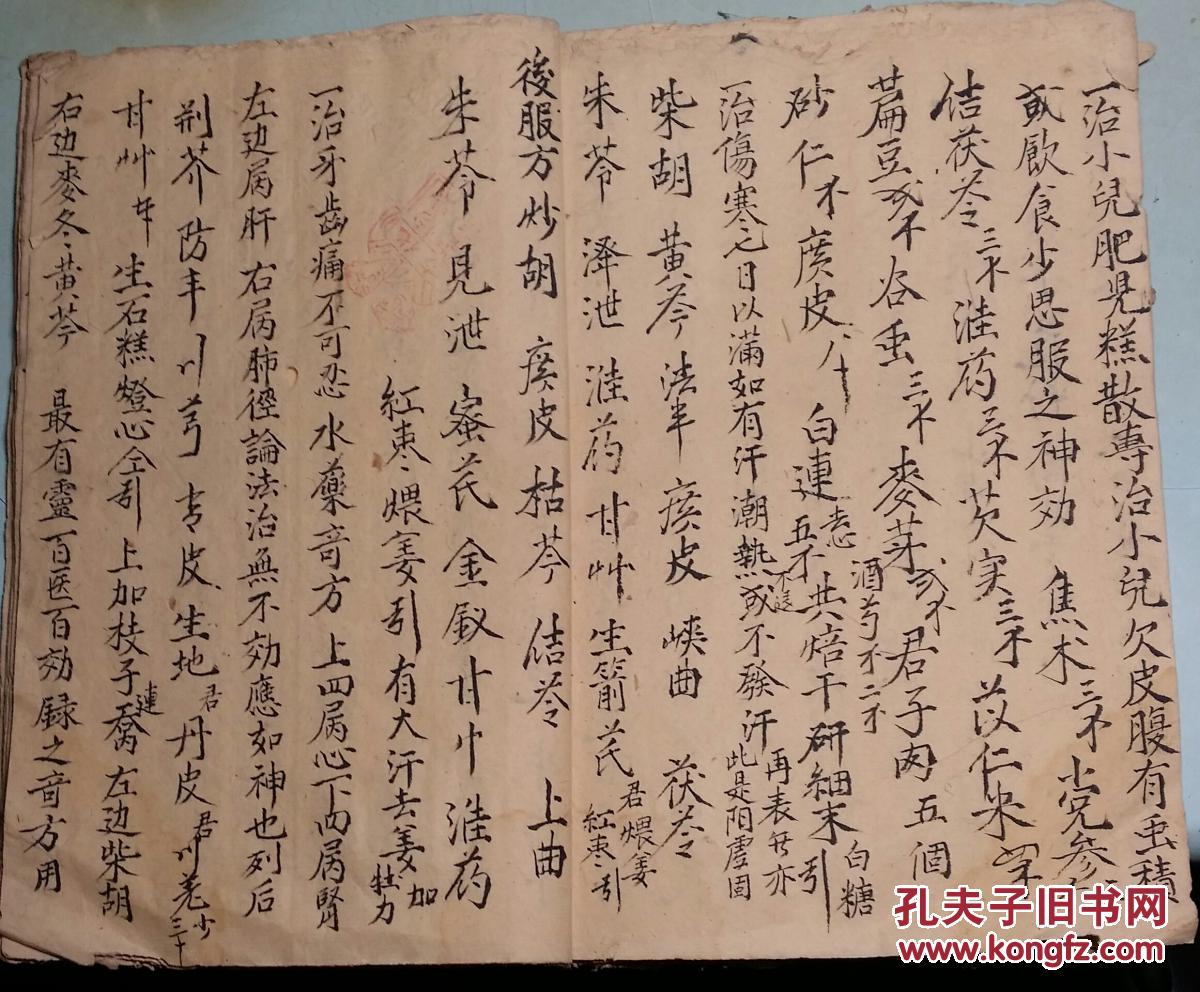 一治小兒肥児糕散專治小兒欠皮腹有虫積
或飲食少思服之神効 焦术三不 党參
佶茯苓三不 淮药三不 芡实三不 苡仁米
萹豆或不 谷虫三不 麥芽或不 君子肉五個
酒芍不二不
砂仁不 廣皮八十 白連五不 共焙干研細末 白糖引
一治傷寒七日以满如有汗潮熱或不發汗 再表此是阳虚固
柴胡 黄芩 法半 廣皮 峽曲 茯苓
朱苓 泽泄 淮药 甘艸 生箭芪 君煨姜 紅枣引
後服方炒胡 廣皮 枯芩 佶苓 上曲
朱苓 見泄 蜜芪 金釵 甘中 淮药
紅枣煨姜引 有大汗去姜加牡力
一治牙齒痛不可忍水藥竒方 上四属心下四属腎
左边属肝 右属肺徑論法治無不効應如神也列后
荆芥 防丰 川芎 青皮 生地君 丹皮君 川羌少三十
甘艸 生石糕 燈心仝引 上加枝子 連喬 左边柴胡
右边麥冬黄芩 最有靈一百医百効録之音方用
孔夫子旧书网
www.kongfz.com